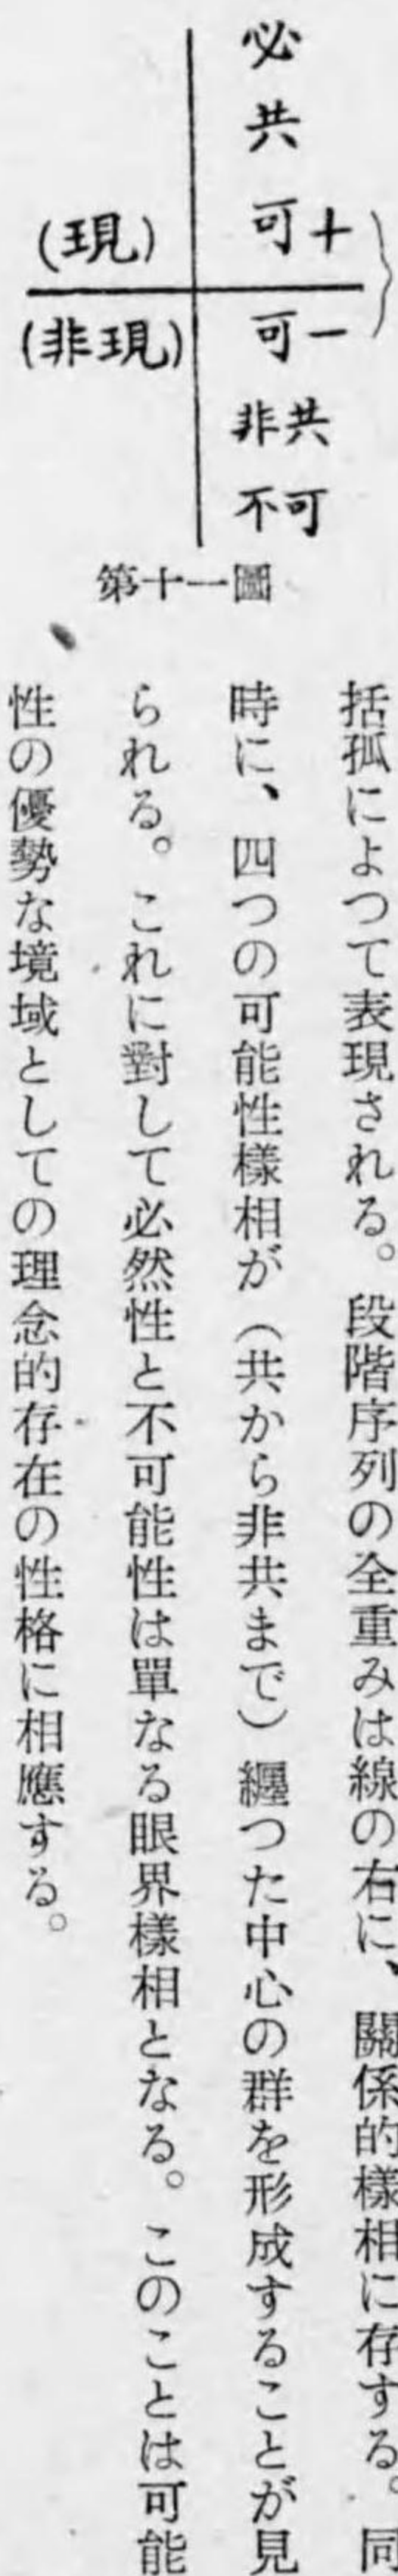 必
共
(現) 可＋
(非現) 可－
非共
不可
第十一圖
括孤によつて表現される。段階序列の全重みは線の右に、關係的樣相に存する。同
時に、四つの可能性樣相が（共から非共まで）纒つた中心の群を形成することが見
られる。これに對して必然性と不可能性は單なる眼界樣相となる。このことは可能
性の優勢な境域としての理念的存在の性格に相應する。